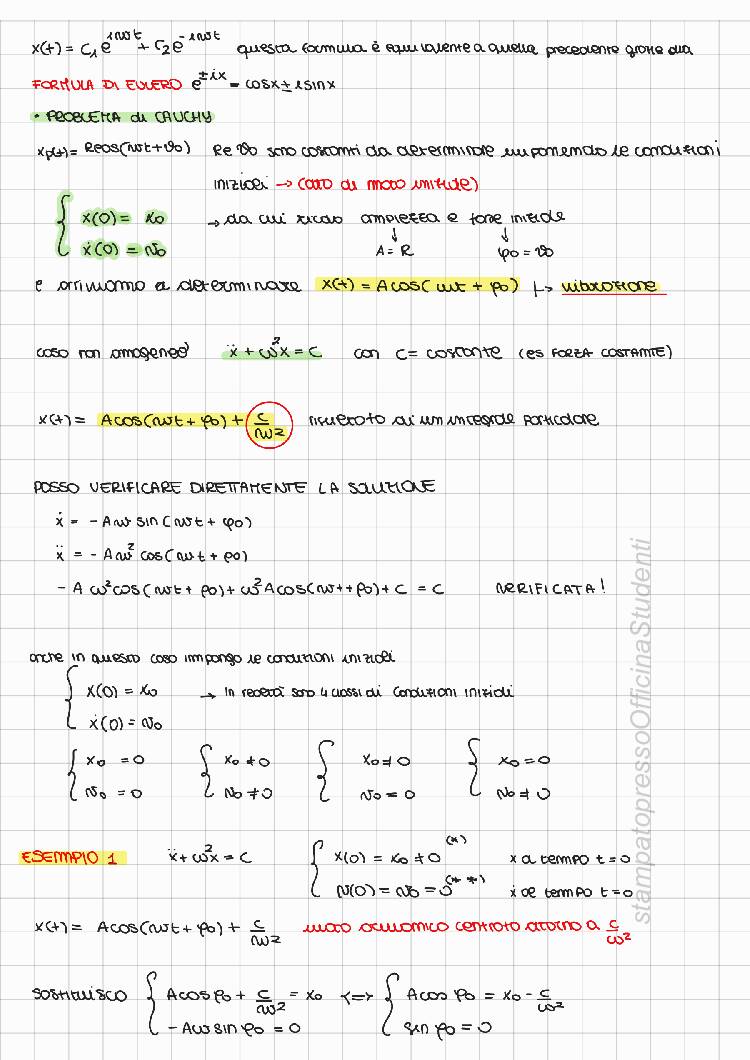 x(t) = c₁e^{iωt} + c₂e^{-iωt} questa formula è equivalente a quella precedente grazie alla
FORMULA DI EULERO e^{±ix} = cosx ± i sinx
• PROBLEMA di CAUCHY
xp(t) = Rcos(ωt+θ₀) R e θ₀ sono costanti da determinare imponendo le condizioni
iniziali → (atto di moto iniziale)
{ x(0) = x₀ → da cui ricavo ampiezza e fase iniziale
ẋ(0) = v₀ ↓ A = R ↓ φ₀ = θ₀
e arriviamo a determinare x(t) = Acos(ωt + φ₀) |→ vibrazione
caso non omogeneo ẍ + ω²x = c con c = costante (es FORZA COSTANTE)
x(t) = Acos(ωt + φ₀) + c/ω² di un integrale particolare
POSSO VERIFICARE DIRETTAMENTE LA SOLUZIONE
ẋ = - Aω sin(ωt + φ₀)
ẍ = - Aω² cos(ωt + φ₀)
- A ω²cos(ωt + φ₀) + ω²Acos(ωt+φ₀) + c = c VERIFICATA!
anche in questo caso impongo le condizioni iniziali
{ x(0) = x₀ → In realtà sono 4 classi di condizioni iniziali
ẋ(0) = v₀
{ x₀ = 0 { x₀ ≠ 0 { x₀ ≠ 0 { x₀ = 0
v₀ = 0 v₀ ≠ 0 v₀ = 0 v₀ ≠ 0
ESEMPIO 1 ẍ + ω²x = c { x(0) = x₀ ≠ 0 (*) x a tempo t = 0
v(0) = v₀ = 0 (**) ẋ al tempo t = 0
x(t) = Acos(ωt + φ₀) + c/ω² moto armonico centrato attorno a c/ω²
sostituisco { Acosφ₀ + c/ω² = x₀ <=> { Acos φ₀ = x₀ - c/ω²
- Aω sin φ₀ = 0 sin φ₀ = 0
stampatopressoOfficinaStudenti